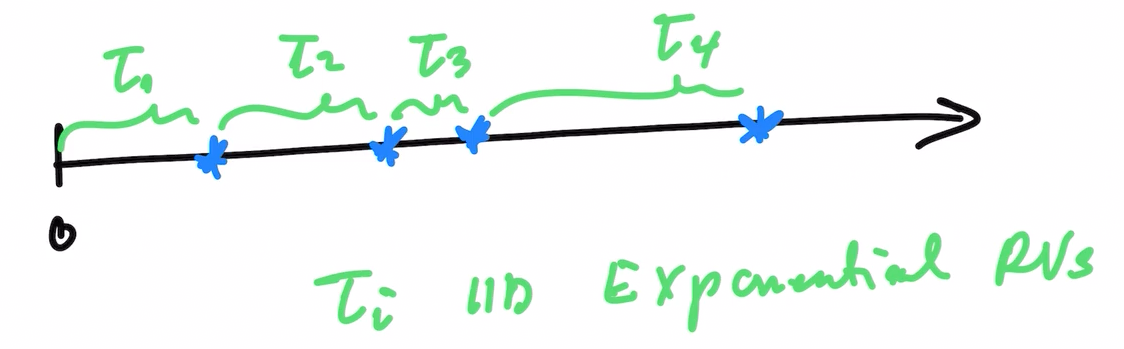 τ₁ τ₂ τ₃ τ₄
0
τᵢ IID Exponential RVs